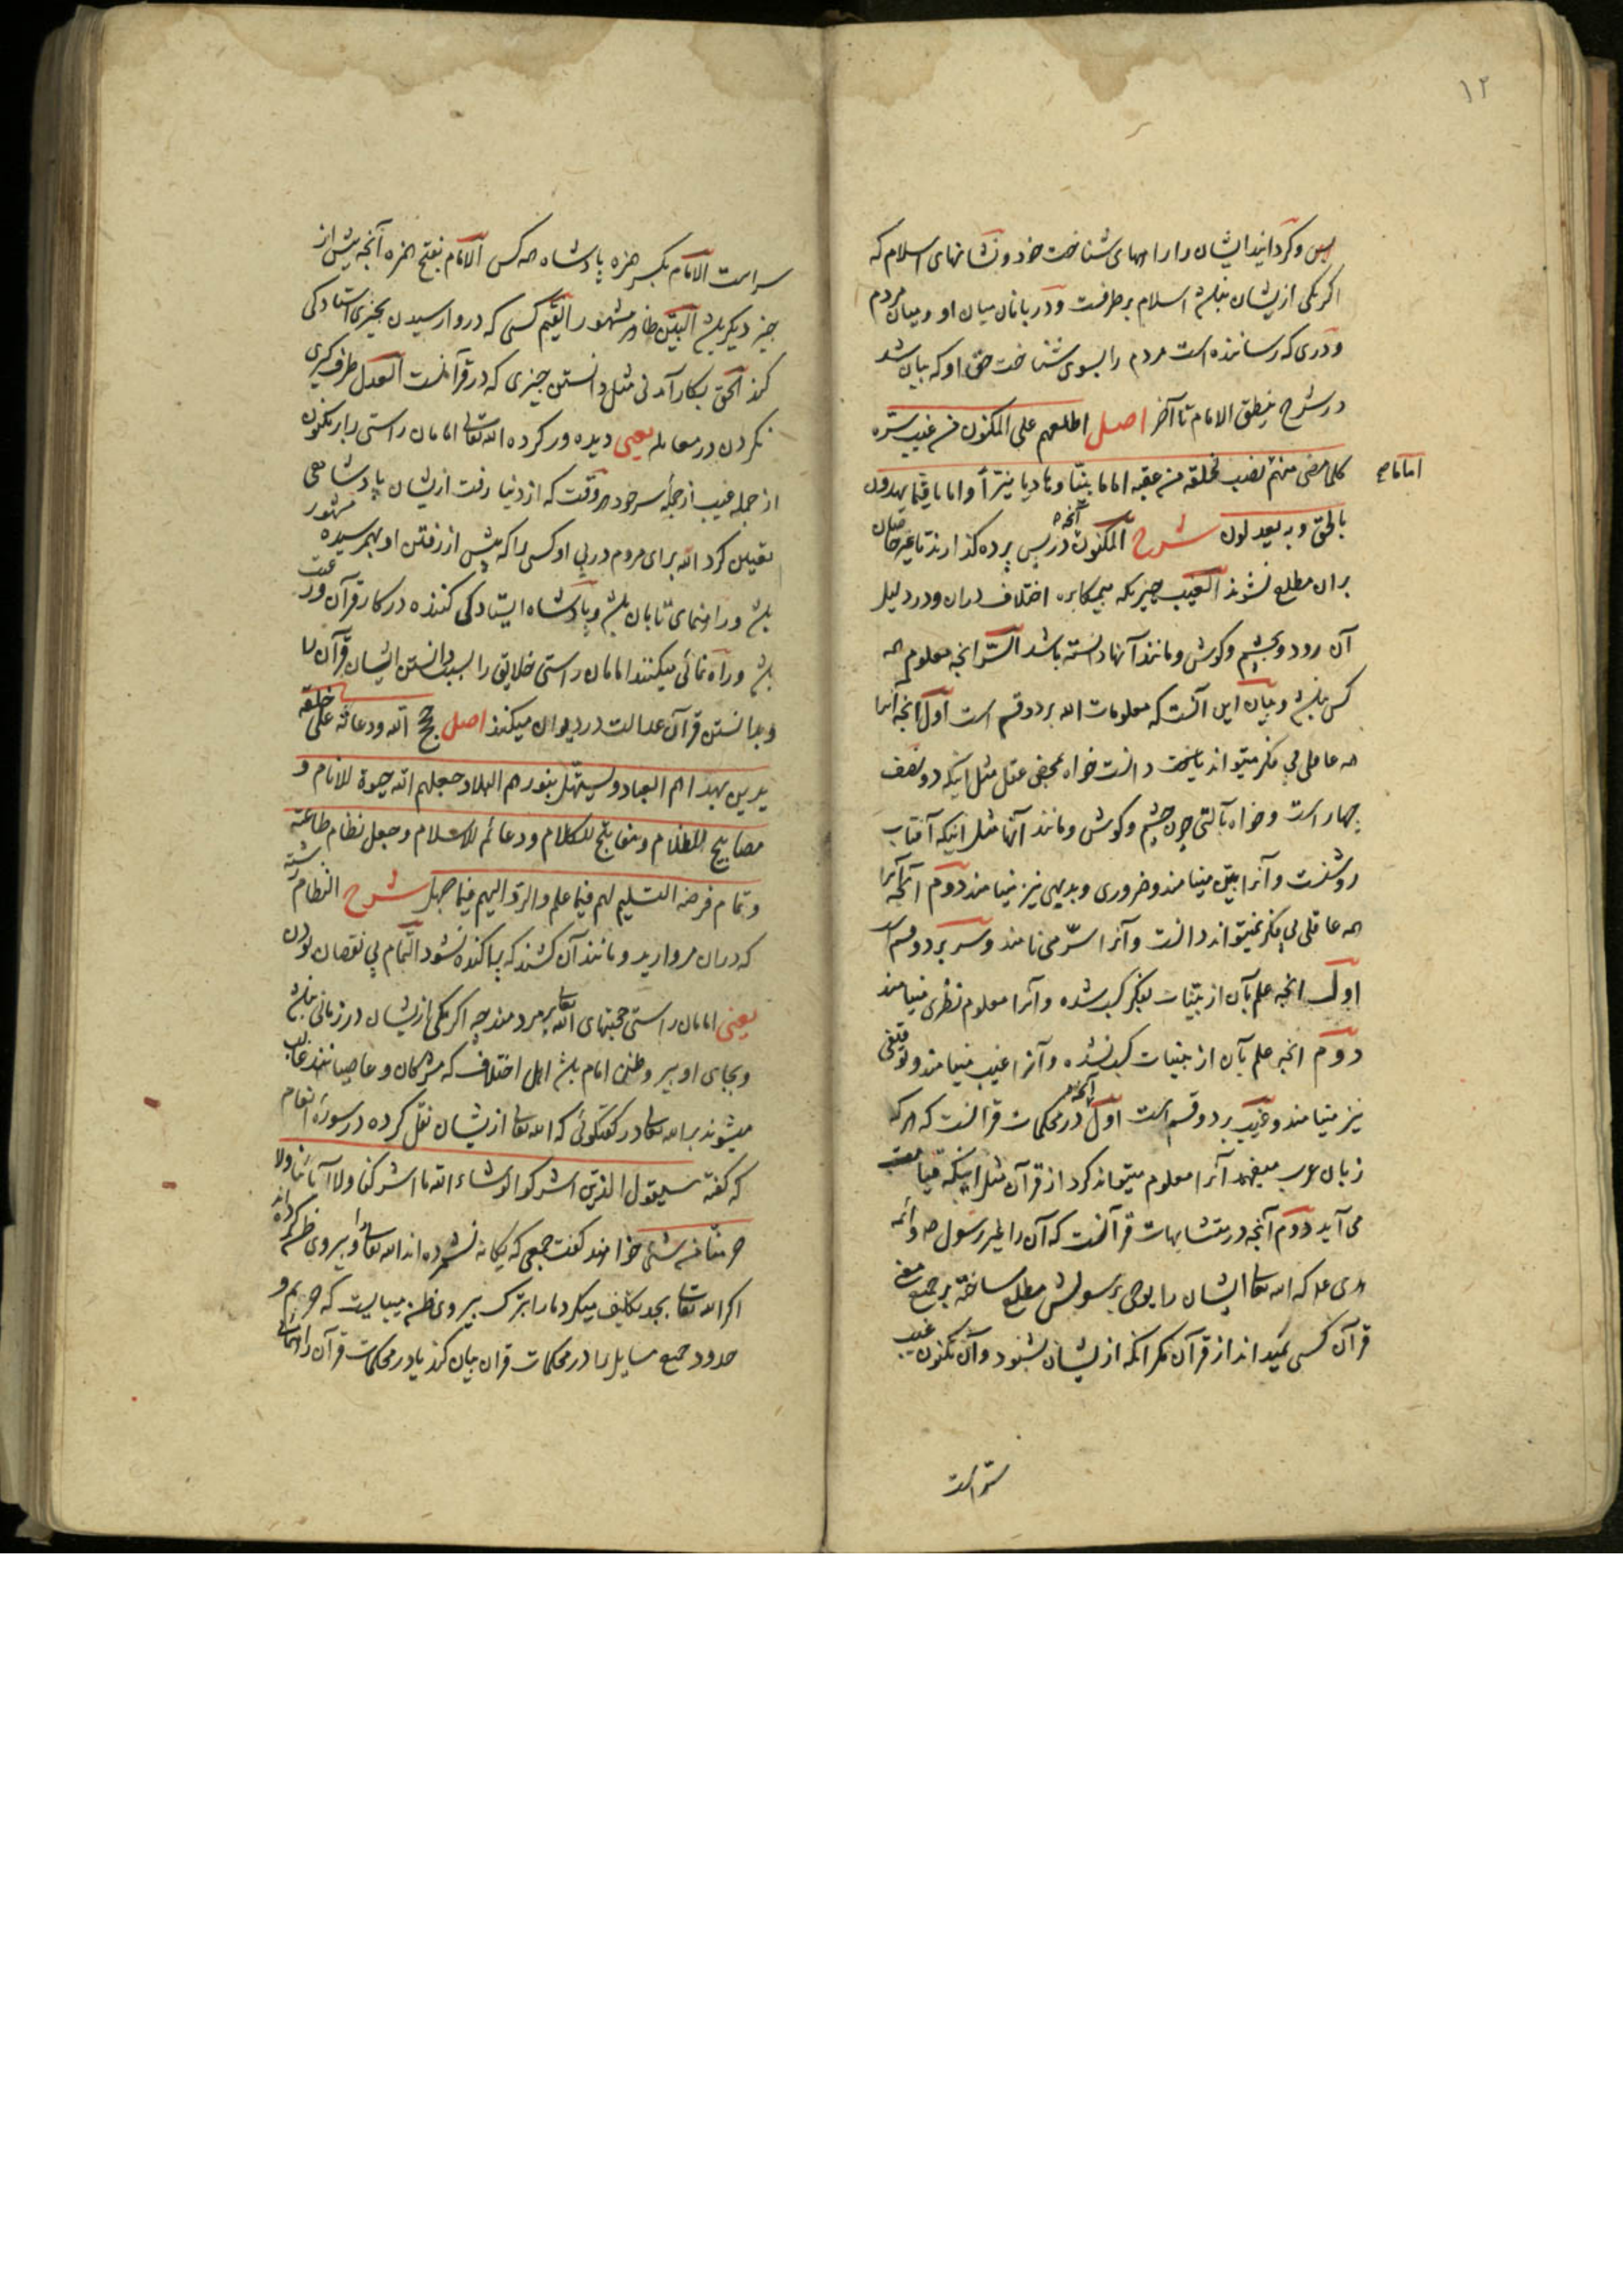 ۱۲
پس و گردانید ایشان را راههای شناخت خود و نشانهای اسلام که
اگر یکی ازیشان نباشد اسلام برطرفست و دربانان میان او و میان مردم
و دری که رساننده است مردم را بسوی شناخت حق او که بیان شد
در شرح ینطق الامام تا آخر اصل اطلعهم علی المکنون من غیب سره
کلما مضی منهم امام نصب لخلقه من عقبه اماما بینا و هادیا نیرا و اماما قیما یهدون
بالحق و به یعدلون شرح المکنون آنچه در پس پرده گذارند تا غیر خاصان
بران مطلع نشوند الغیب چیزیکه بیمکابره اختلاف دران و در دلیل
آن رود و بچشم و گوش و مانند آنها دانسته نباشد السر انچه معلوم همه
کس نباشد و بیان این آنست که معلومات الله بر دو قسم است اول انچه آنرا
همه عاقلی بی فکر میتواند یافت دانست خواه بمحض عقل مثل اینکه دو نصف
چهار است و خواه بآلتی چون چشم و گوش و مانند آنها مثل اینکه آفتاب
روشنست و آنرا بین مینامند و ضروری و بدیهی نیز مینامند دوم آنچه آنرا
همه عاقلی بی فکر نمیتواند دانست و آنرا سر می نامند و سر بر دو قسم است
اول انچه علم بآن از بینات بفکر کسب شده و آنرا معلوم نظری مینامند
دوم انچه علم بآن از بینات کسب نشده و آنرا غیب مینامند و توقیفی
نیز مینامند و غیب بر دو قسم است اول آنچه در محکمات قرآنست که هر که
زبان عرب میفهمد آنرا معلوم میتواند کرد از قرآن مثل اینکه قیامت
می آید دوم آنچه در متشابهات قرآنست که آن را غیر رسول ص و ائمه
هدی ع که الله تعالی ایشان را بوحی برسولش مطلع ساخته بر جمیع معنی
قرآن کسی نمیداند از قرآن مگر انکه ازیشان بشنود و آن مکنون غیب
سر است
سر است الامام بکسر همزه پادشاه همه کس الامام بفتح همزه آنچه پیش از
چیز دیگر باشد البین ظاهر مشهور القیم کسی که در وارسیدن بچیزی استادگی
کند الحق بکار آمدنی مثل دانستن چیزی که در قرآنست العدل طرف گیری
نکردن در معامله یعنی دیده ور کرده الله تعالی امامان راستی را بر مکنون
از جمله غیب از جمله سر خود هر وقت که از دنیا رفت ازیشان پادشاهی
تعیین کرد الله برای مردم در پی او کسی را که پیش از رفتن او بهمرسیده مشهور
باشد و راهنمای تابان باشد و پادشاه ایستادگی کننده در کار قرآن وقت
باشد و راه نمائی میکنند امامان راستی خلایق را بسبب دانستن ایشان قرآن را
و بدانستن قرآن عدالت در دیوان میکنند اصل حجج الله و دعاته علی خلقه
یدین بهداهم العباد و یستهل بنورهم البلاد جعلهم الله حیوة للانام و
مصابیح للظلام و مفاتیح للکلام و دعائم للاسلام و جعل نظام طاعته
و تمام فرضه التسلیم لهم فیما علم و الرد الیهم فیما جهل شرح النظام رشته
که دران مروارید و مانند آن کشند که پراکنده نشود التمام بی نقصان بودن
یعنی امامان راستی حجتهای الله تعالی بر مردمند چه اگر یکی ازیشان در زمانی نباشد
و بجای او پیرو ظنی امام باشد اهل اختلاف که مشرکان و عاصیانند غالب
میشوند بر الله تعالی در گفتگوئی که الله تعالی ازیشان نقل کرده در سوره انعام
که گفته سیقول الذین اشرکوا لو شاء الله ما اشرکنا و لا آباؤنا و لا
حرمنا من شئ خواهند گفت جمعی که یگانه نشمرده اند الله تعالی را و پیروی ظن کرده اند
اگر الله تعالی بجد تکلیف میکرد ما را بترک پیروی ظن میبایست که حریم و
حدود جمیع مسایل را در محکمات قرآن بیان کند یا در محکمات قرآن راهنمائی